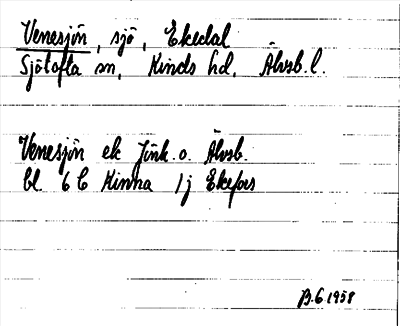 Venesjön, sjö, Ekedal
Sjötofta sn, Kinds hd, Älvsb. l.
Venesjön ek Jönk. o. Älvsb.
bl 6 C Kinna 1j Ekefors
B.G 1958